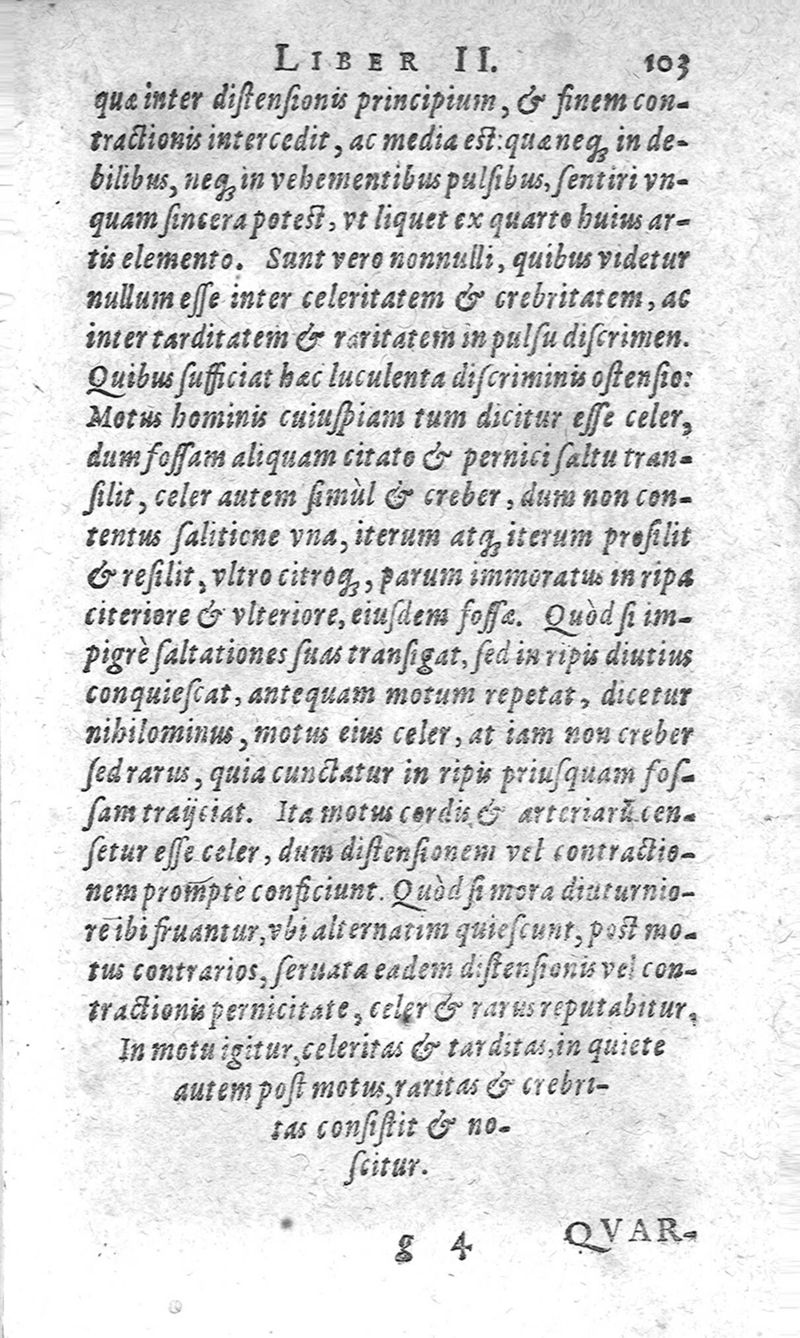 LIBER II. 103
quæ inter distensionis principium, & finem con-
tractionis intercedit, ac media est: quæ neq; in de-
bilibus, neq; in vehementibus pulsibus, sentiri vn-
quam sincera potest, vt liquet ex quarto huius ar-
tis elemento. Sunt vero nonnulli, quibus videtur
nullum esse inter celeritatem & crebritatem, ac
inter tarditatem & raritatem in pulsu discrimen.
Quibus sufficiat hæc luculenta discriminis ostensio:
Motus hominis cuiuspiam tum dicitur esse celer,
dum fossam aliquam citato & pernici saltu tran-
silit, celer autem simùl & creber, dum non con-
tentus salitione vna, iterum atq; iterum prosilit
& resilit, vltro citroq;, parum immoratus in ripa
citeriore & vlteriore, eiusdem fossæ. Quòd si im-
pigrè saltationes suas transigat, sed in ripis diutius
conquiescat, antequam motum repetat, dicetur
nihilominus, motus eius celer, at iam non creber
sed rarus, quia cunctatur in ripis priusquam fos-
sam traijciat. Ita motus cordis & arteriarū cen-
setur esse celer, dum distensionem vel contractio-
nem promptè conficiunt. Quòd si mora diuturnio-
re ibi fruantur, vbi alternatim quiescunt, post mo-
tus contrarios, seruata eadem distensionis vel con-
tractionis pernicitate, celer & rarus reputabitur.
In motu igitur, celeritas & tarditas, in quiete
autem post motus, raritas & crebri-
tas consistit & no-
scitur.
g 4 QVAR-